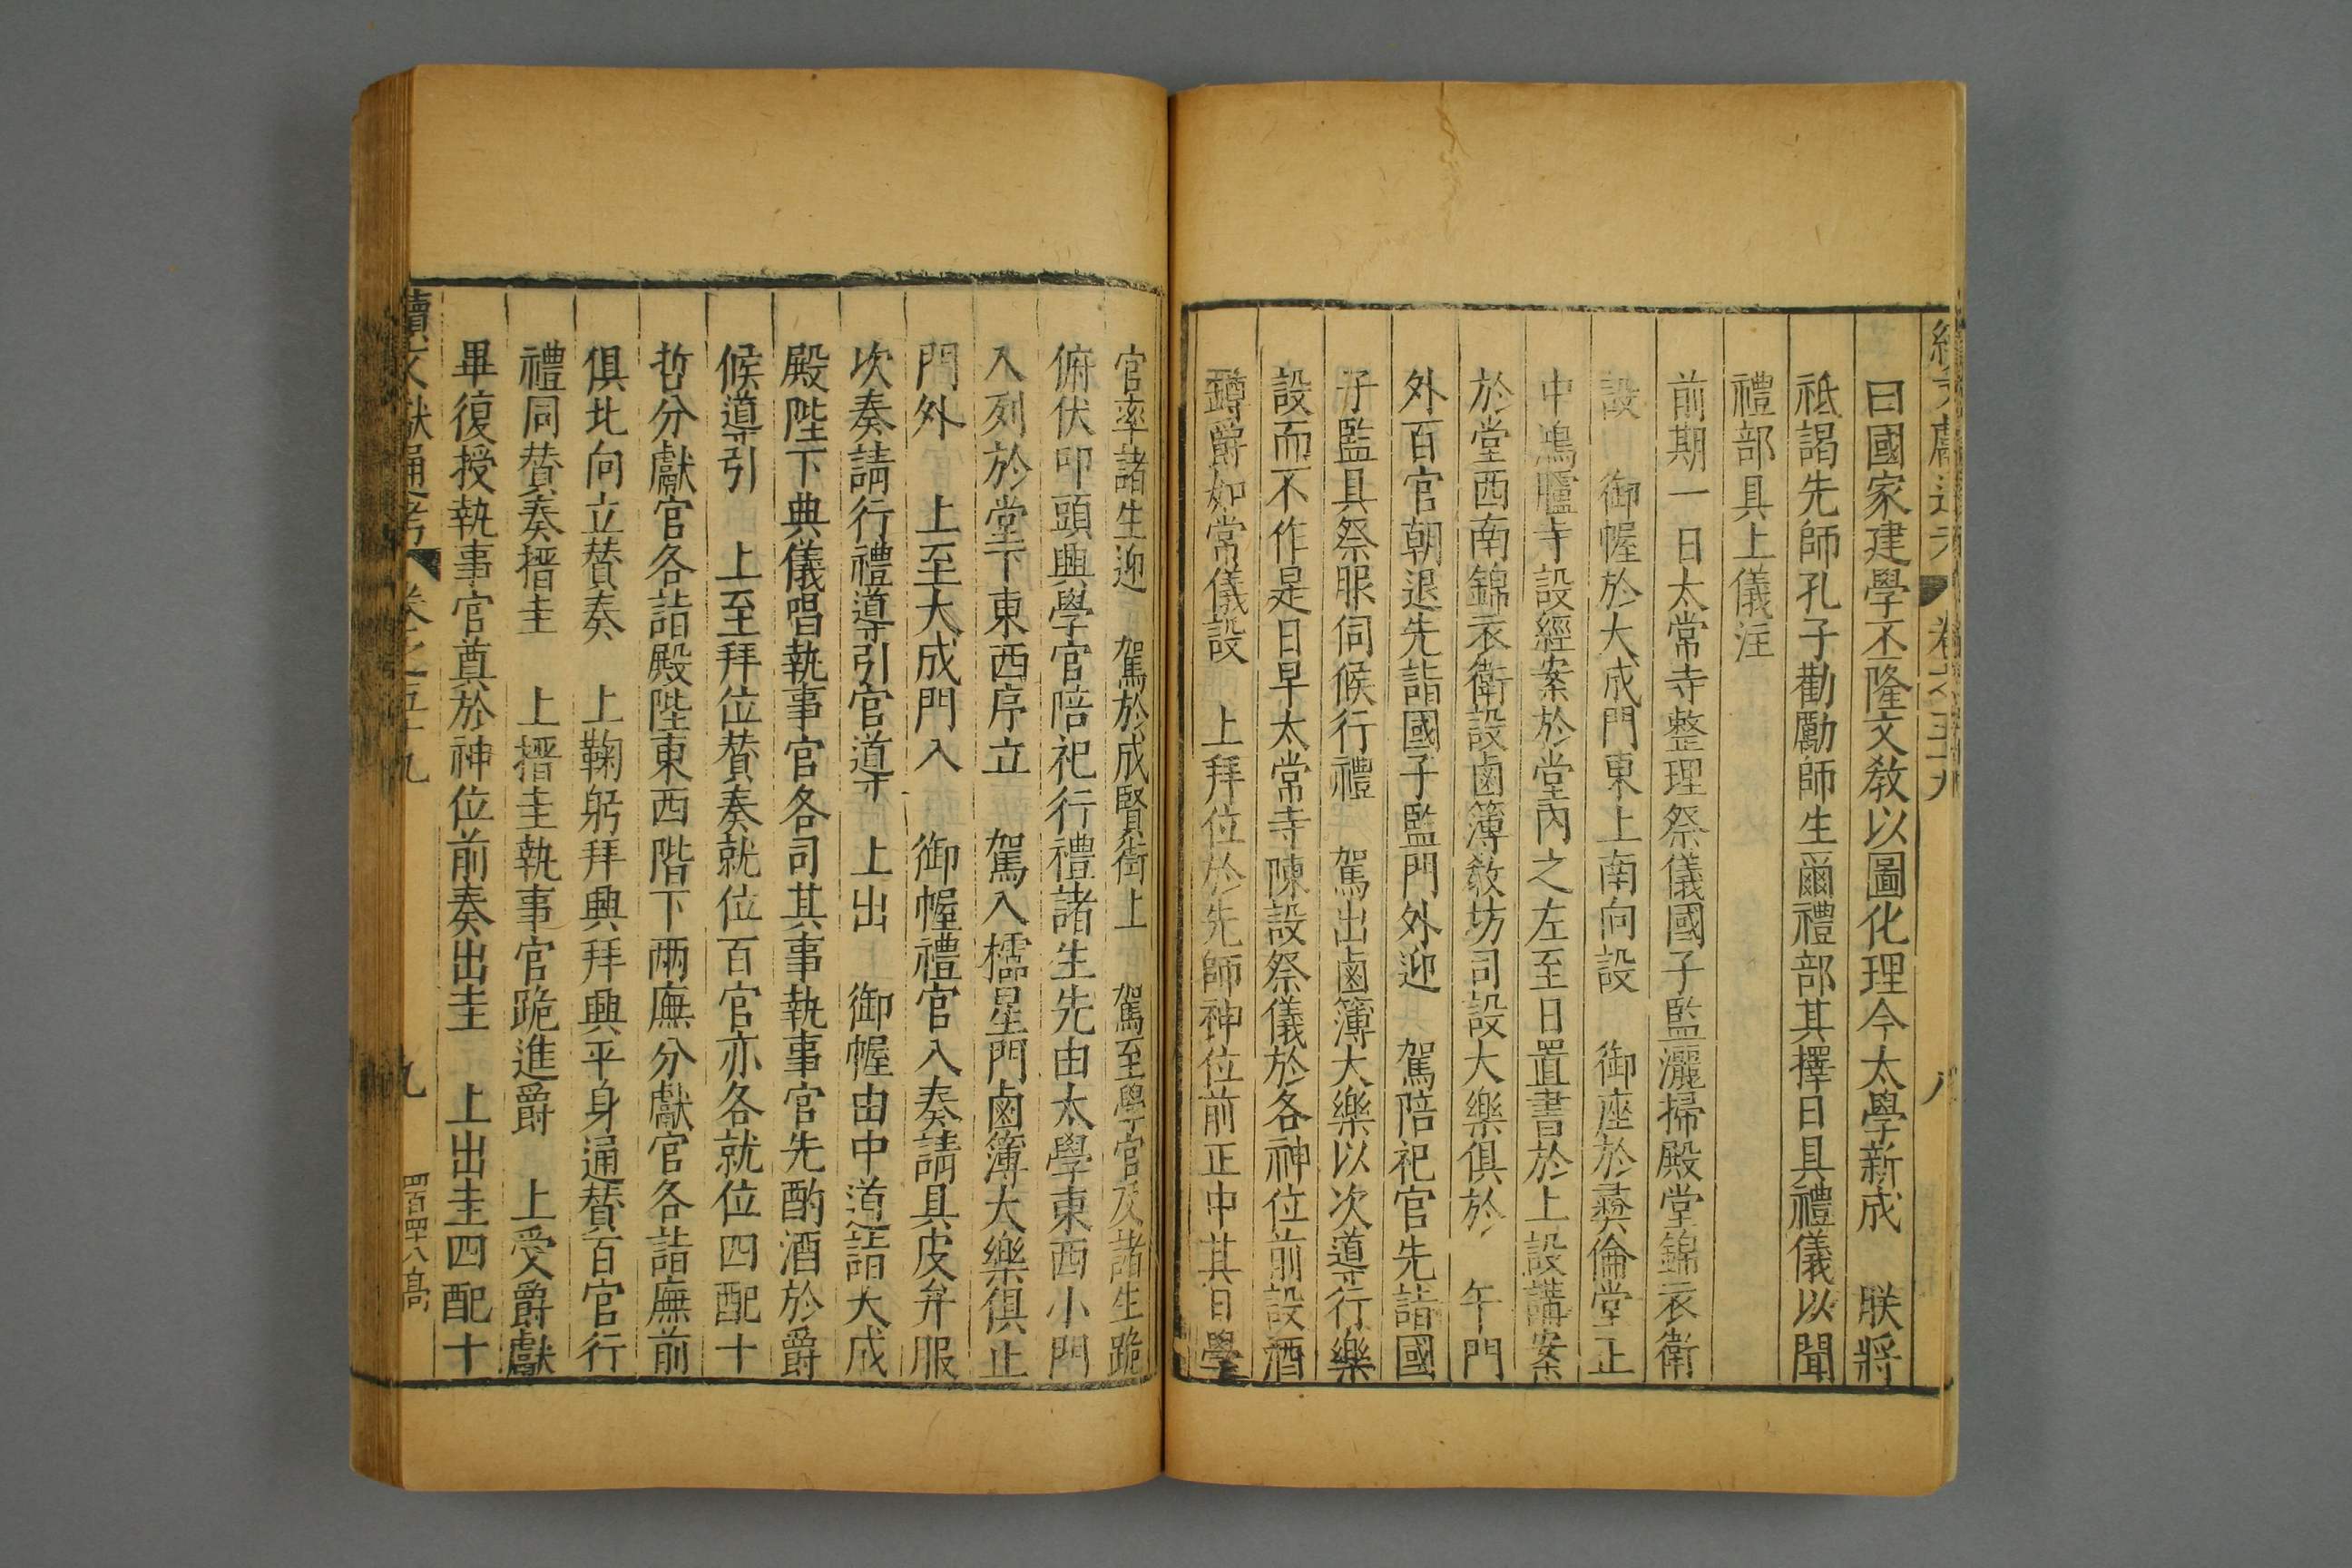 續文獻通考 卷之五十九 八
曰國家建學丕隆文敎以圖化理今太學新成　朕將
祗謁先師孔子勸勵師生爾禮部其擇日具禮儀以聞
禮部具上儀注
前期一日太常寺整理祭儀國子監灑掃殿堂錦衣衛
設　御幄於大成門東上南向設　御座於彝倫堂正
中鴻臚寺設經案於堂內之左至日置書於上設講案
於堂西南錦衣衛設鹵簿敎坊司設大樂俱於　午門
外百官朝退先詣國子監門外迎　駕陪祀官先詣國
子監具祭服伺候行禮　駕出鹵簿大樂以次導行樂
設而不作是日早太常寺陳設祭儀於各神位前設酒
罇爵如常儀設　上拜位於先師神位前正中其日學
官率諸生迎　駕於成賢街上　駕至學官及諸生跪
俯伏叩頭興學官陪祀行禮諸生先由太學東西小門
入列於堂下東西序立　駕入櫺星門鹵簿大樂俱止
門外　上至大成門入　御幄禮官入奏請具皮弁服
次奏請行禮導引官導　上出　御幄由中道詣大成
殿陛下典儀唱執事官各司其事執事官先酌酒於爵
候導引　上至拜位贊奏就位百官亦各就位四配十
哲分獻官各詣殿陛東西階下兩廡分獻官各詣廡前
俱北向立贊奏　上鞠躬拜興拜興平身通贊百官行
禮同贊奏搢圭　上搢圭執事官跪進爵　上受爵獻
畢復授執事官奠於神位前奏出圭　上出圭四配十
續文獻通考 卷之五十九 九 四百四十八高